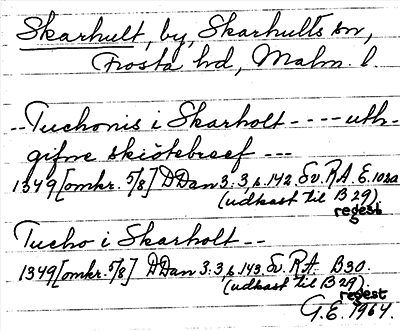 Skarhult, by, Skarhults sn,
Frosta hd, Malm. l.
--Tuchonis i Skarholt ---- uth-
gifne skiötebreef ---
1349 [omkr. 5/8] DDan 3.3, s. 142. Sv. RA. E. 102a
(udkast til B 29)
regest
Tucho i Skarholt --
1349 [omkr. 5/8] DDan 3.3, s. 143. Sv. RA. B30.
(udkast til B 29)
regest
G.E. 1964.